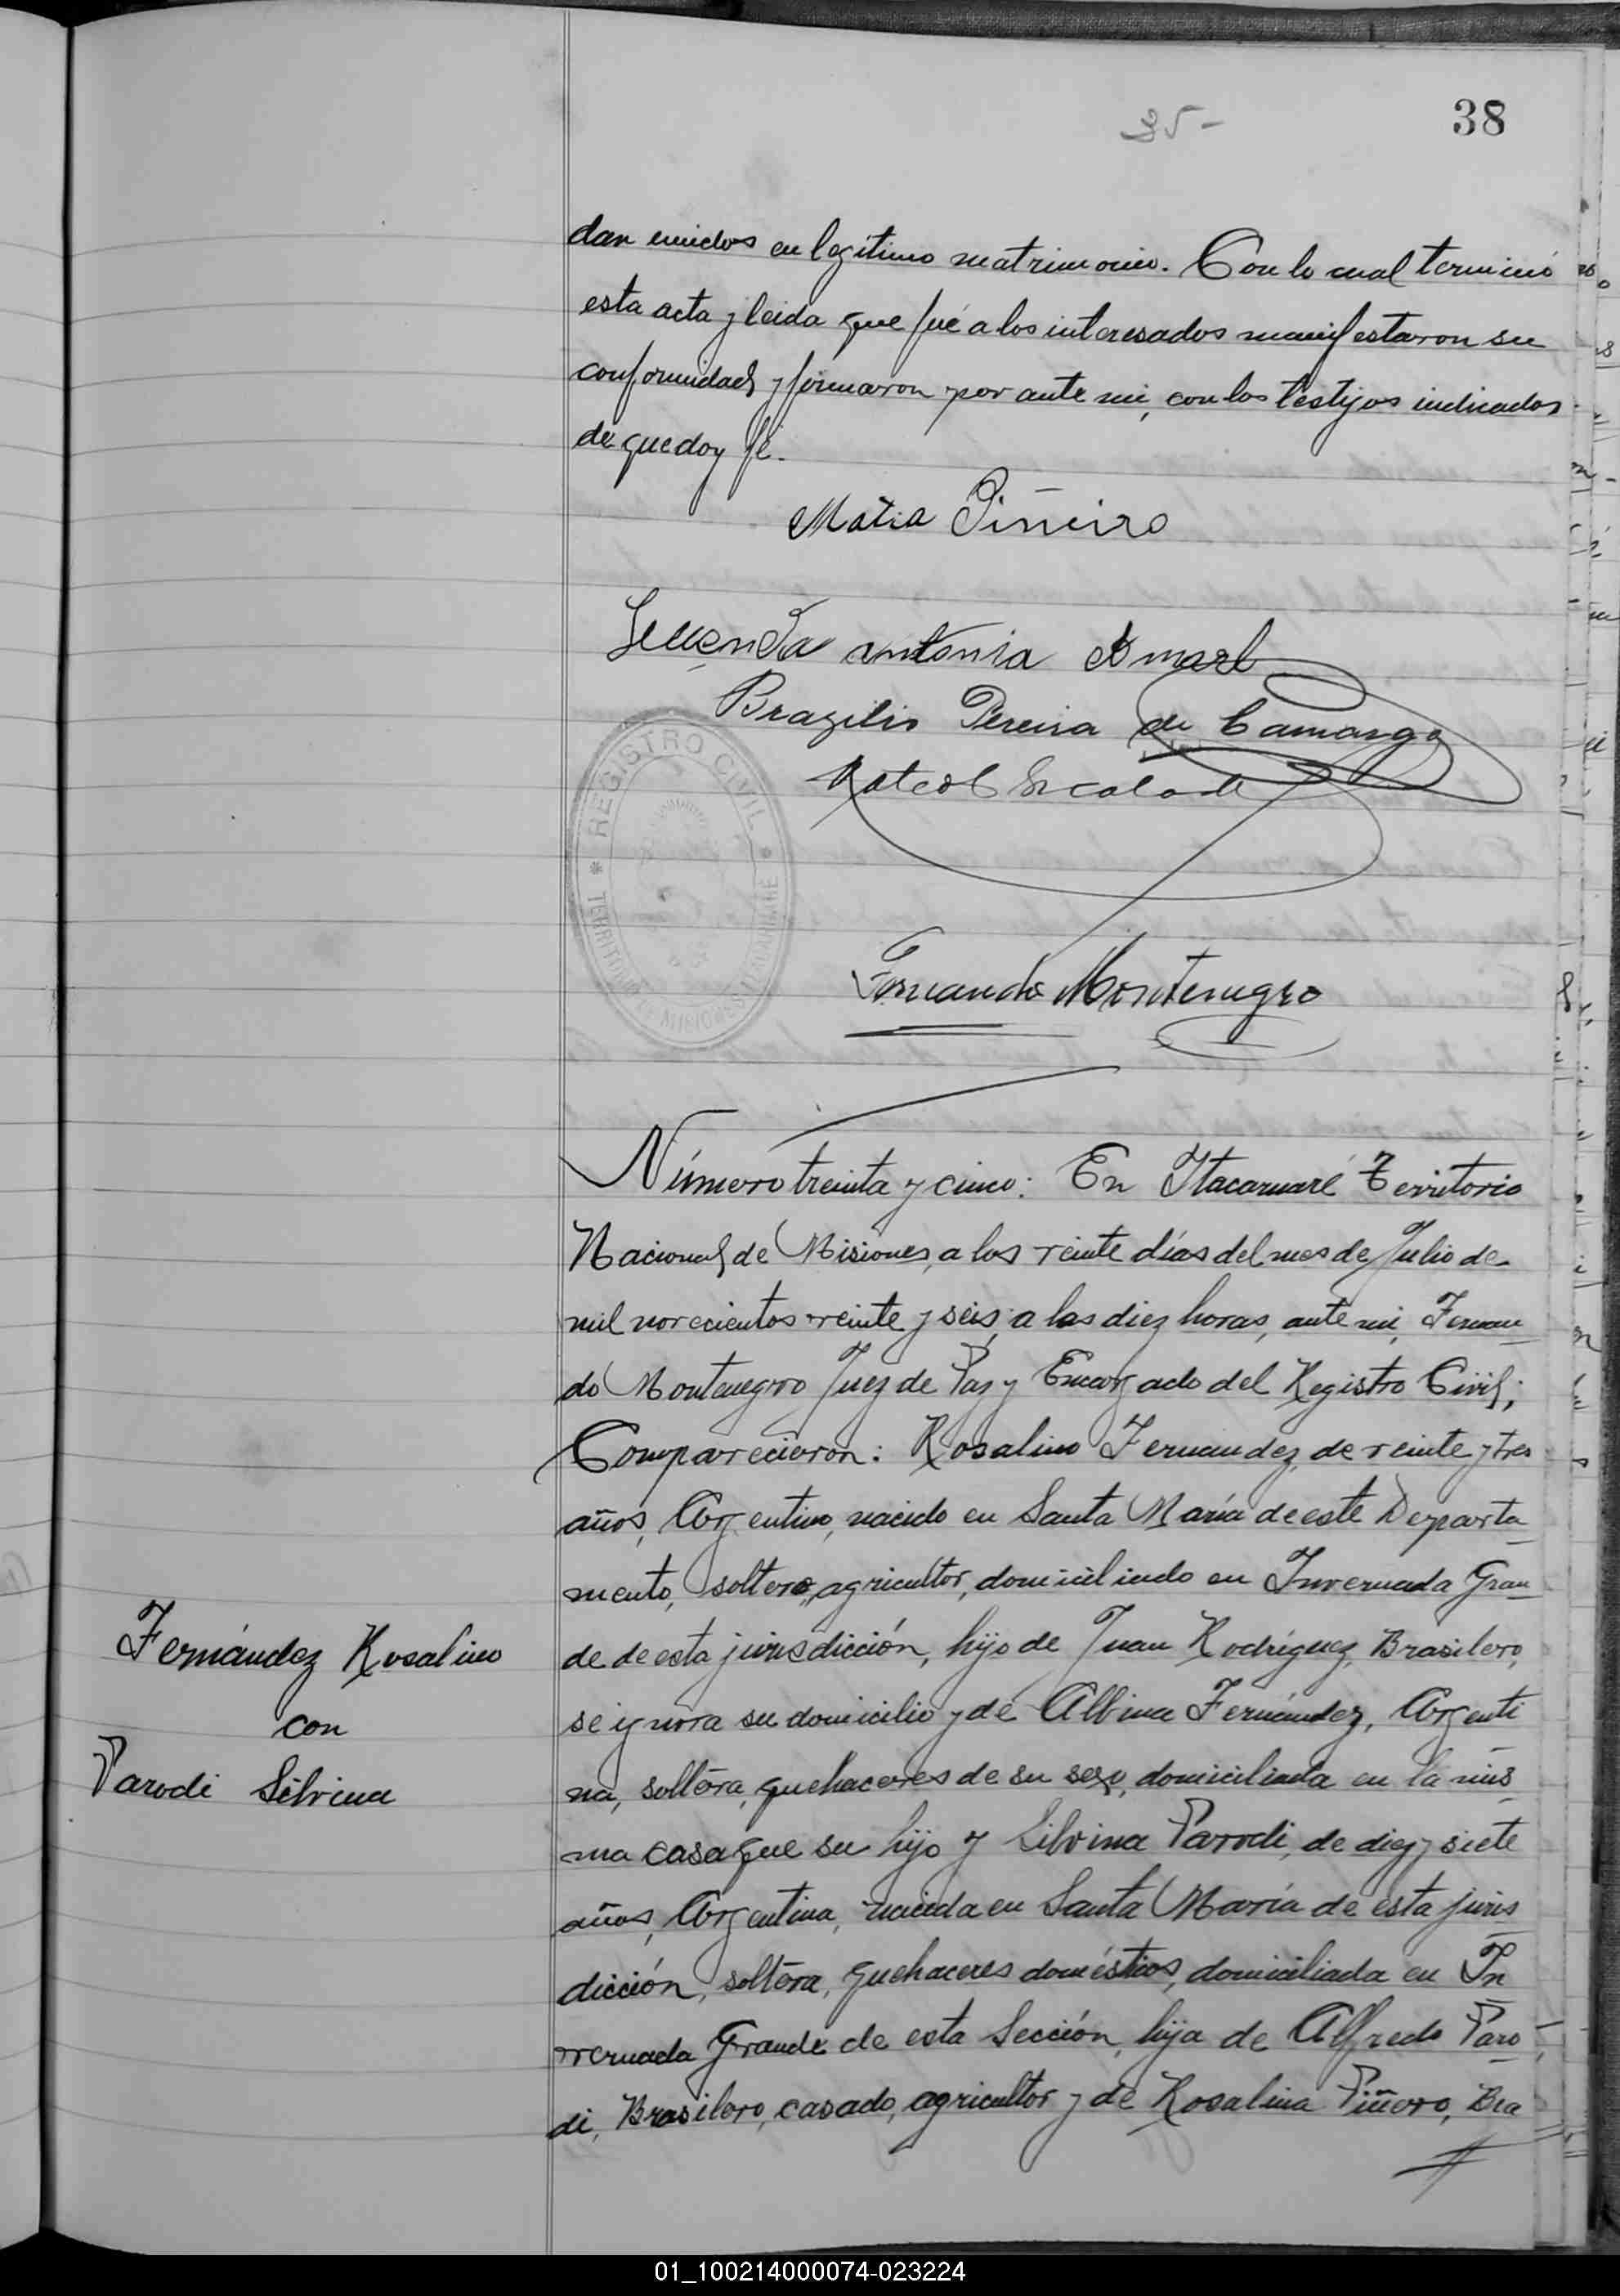 35-
38
dan unidos en legítimo matrimonio. Con lo cual terminó
esta acta y leida que fué a los interesados manifestaron su
conformidad y firmaron por ante mi, con los testigos indicados
de que doy fé.
Matia Piñeiro
antonia Amarl
Brazilio Pereira de Camargo
REGISTRO CIVIL
TERRITORIO MISIONES
Fernando Montenegro
Número treinta y cinco: En Itacaruaré Territorio
Nacional de Misiones, a los veinte días del mes de Julio de
mil novecientos veinte y seis, a las diez horas, ante mi, Fernan
do Montenegro Juez de Paz y Encargado del Registro Civil;
Comparecieron: Rosalino Fernandez, de veinte y tres
años, Argentino, nacido en Santa María de este Departa
mento, soltero, agricultor, domiciliado en Invernada Gran
de de esta jurisdicción, hijo de Juan Rodríguez, Brasilero,
se ignora su domicilio y de Albina Fernández, Argenti
na, soltera, quehaceres de su sexo, domiciliada en la mis
ma casa que su hijo y Silvina Parodi, de diez y siete
años, Argentina, nacida en Santa María de esta juris
dicción, soltera, quehaceres domésticos, domiciliada en In
vernada Grande de esta Sección, hija de Alfredo Paro
di, Brasilero, casado, agricultor y de Rosalina Piñero, Bra
Fernández Rosalino
con
Parodi Silvina
01_100214000074-023224